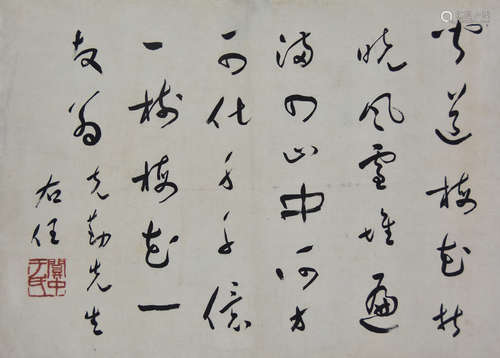 聞道梅花坼
曉風雪堆遍
滿四山中何方
可化身千億
一樹梅花一
放翁 克勤先生
右任
關中于氏